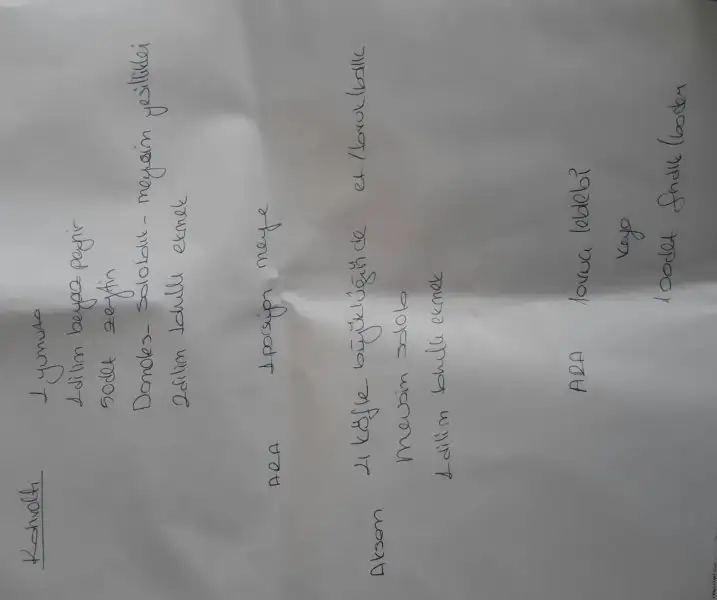 Kahvaltı
1 yumurta
1 dilim beyaz peynir
5 adet zeytin
Domates - salatalık - mevsim yeşillikleri
2 dilim tahıllı ekmek
ARA 1 porsiyon meyve
Akşam 4 köfte büyüklüğünde et / tavuk / balık
mevsim salata
1 dilim tahıllı ekmek
ARA 1 avuç leblebi
veya
10 adet fındık / badem